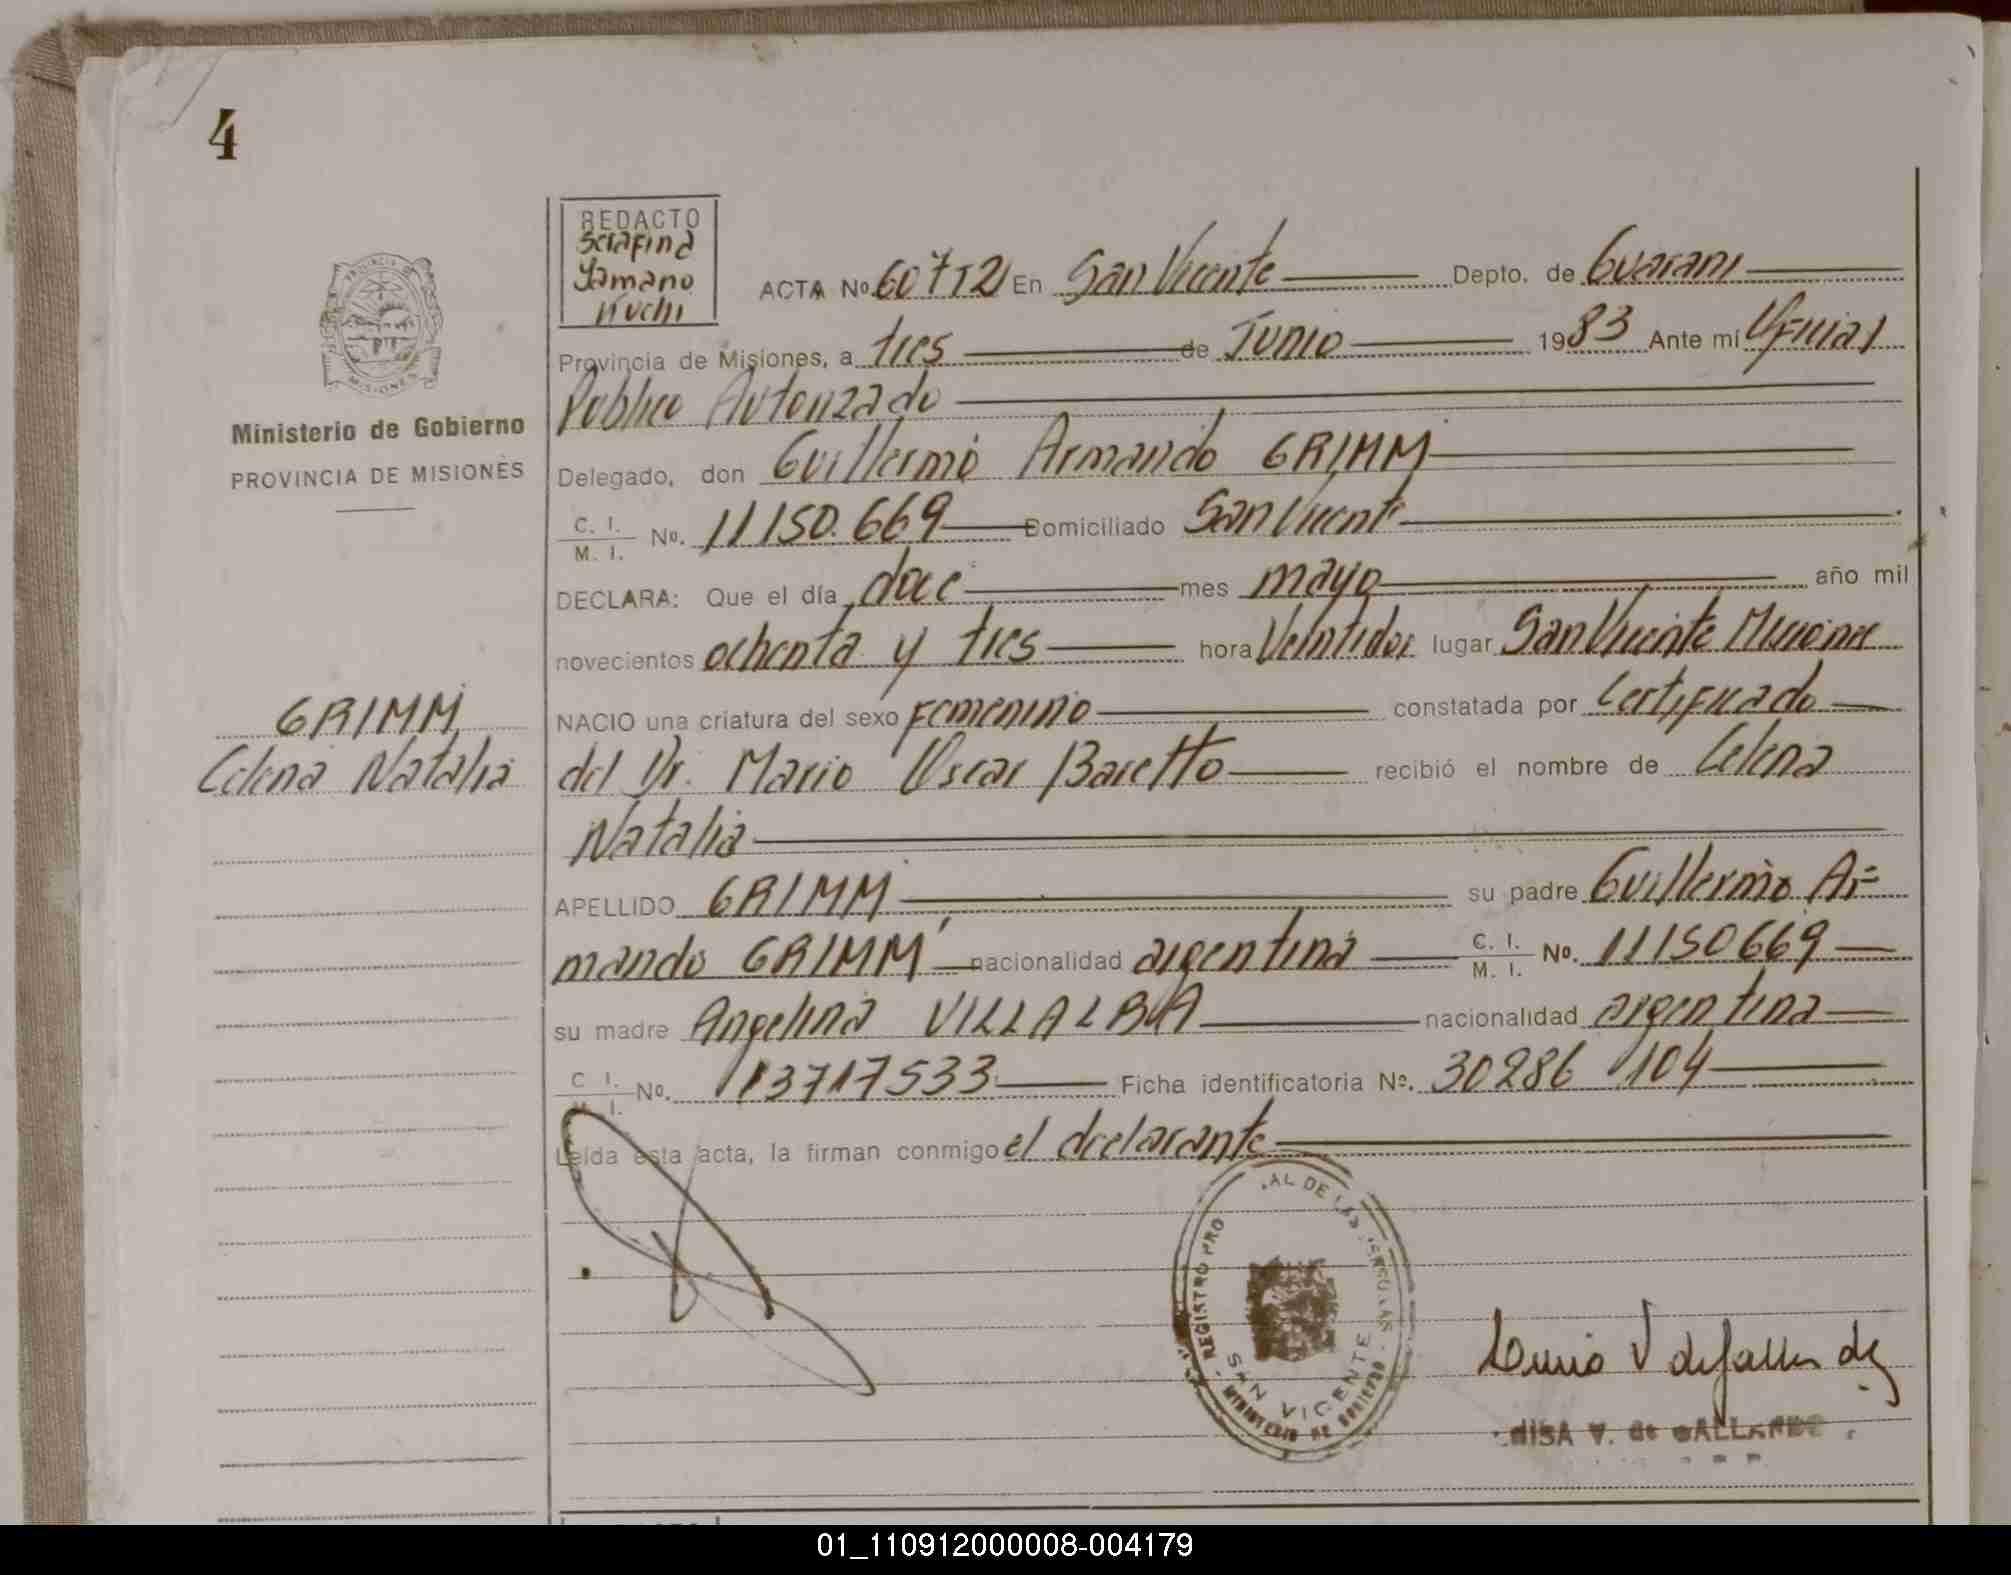 4
REDACTO
Serafina
Yamano
iuchi
ACTA No. 607T2 En San Vicente Depto. de Guarani
Provincia de Misiones, a tres de Junio 1983 Ante mí Oficial
Publico Autorizado
PROVINCIA DE
MISIONES
Ministerio de Gobierno
PROVINCIA DE MISIONES
Delegado, don Guillermo Armando GRIMM
C. I.
M. I. No. 11150.669 Domiciliado San Vicente
DECLARA: Que el día doce mes mayo año mil
novecientos ochenta y tres hora Veintidos lugar San Vicente Misiones
GRIMM
Celena Natalia
NACIO una criatura del sexo Femenino constatada por Certificado
del Dr. Mario Oscar Baretto recibió el nombre de Celena
Natalia
APELLIDO GRIMM su padre Guillermo Ar=
mando GRIMM nacionalidad argentina C. I.
M. I. No. 11150669
su madre Angelina VILLALBA nacionalidad argentina
C. I.
M. I. No. 13717533 Ficha identificatoria No. 30286 104
Leída esta acta, la firman conmigo el declarante
REGISTRO PRO AL DE LAS PERSONAS
SAN VICENTE
MINISTERIO DE GOBIERNO
V. de
01_110912000008-004179